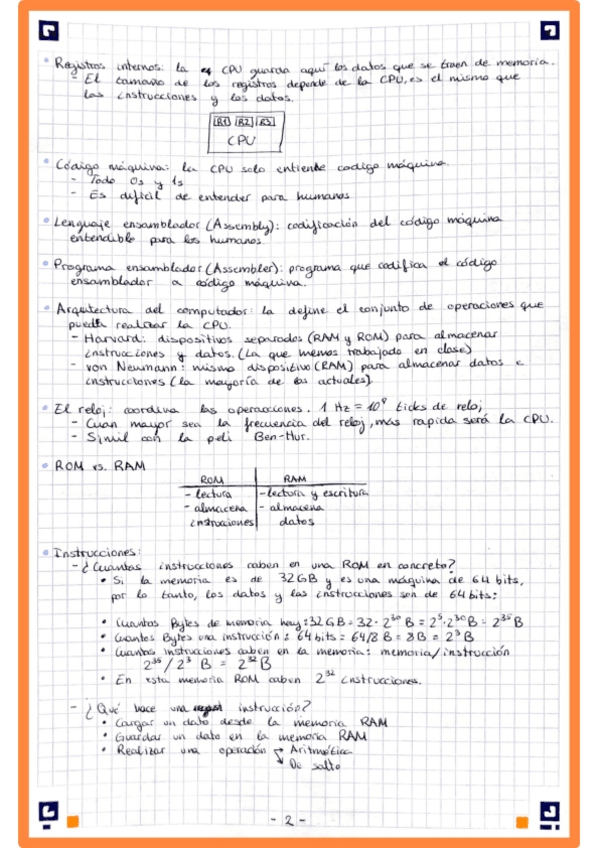 Registros internos: la CPU guarda aquí los datos que se traen de memoria.
- El tamaño de los registros depende de la CPU, es el mismo que
las instrucciones y los datos.
R1 R2 R3
CPU
Código máquina: la CPU solo entiende codigo máquina.
- Todo 0s y 1s
- Es dificil de entender para humanos
Lenguaje ensamblador (Assembly): codificación del código máquina
entendible para los humanos.
Programa ensamblador (Assembler): programa que codifica el código
ensamblador a código máquina.
Arquitectura del computador: la define el conjunto de operaciones que
puede realizar la CPU.
- Harvard: dispositivos separados (RAM y ROM) para almacenar
instrucciones y datos. (La que hemos trabajado en clase)
- von Neumann: mismo dispositivo (RAM) para almacenar datos e
instrucciones (la mayoría de los actuales).
El reloj: coordina las operaciones. 1 Hz = 10⁹ ticks de reloj
- Cuan mayor sea la frecuencia del reloj, más rapida será la CPU.
- Símil con la peli Ben-Hur.
ROM vs. RAM
ROM RAM
- lectura - lectura y escritura
- almacena - almacena
instrucciones datos
Instrucciones:
- ¿Cuantas instrucciones caben en una ROM en concreto?
• Si la memoria es de 32GB y es una máquina de 64 bits,
por lo tanto, los datos y las instrucciones son de 64 bits:
• Cuantos Bytes de memoria hay: 32GB = 32·2³⁰B = 2⁵·2³⁰B = 2³⁵B
• Cuantos Bytes una instrucción: 64 bits = 64/8 B = 8B = 2³B
• Cuantas instrucciones caben en la memoria: memoria/instrucción
2³⁵/2³ B = 2³²B
• En esta memoria ROM caben 2³² instrucciones.
- ¿Qué hace una instrucción?
• Cargar un dato desde la memoria RAM
• Guardar un dato en la memoria RAM
• Realizar una operación → Aritmética
↘ De salto
- 2 -